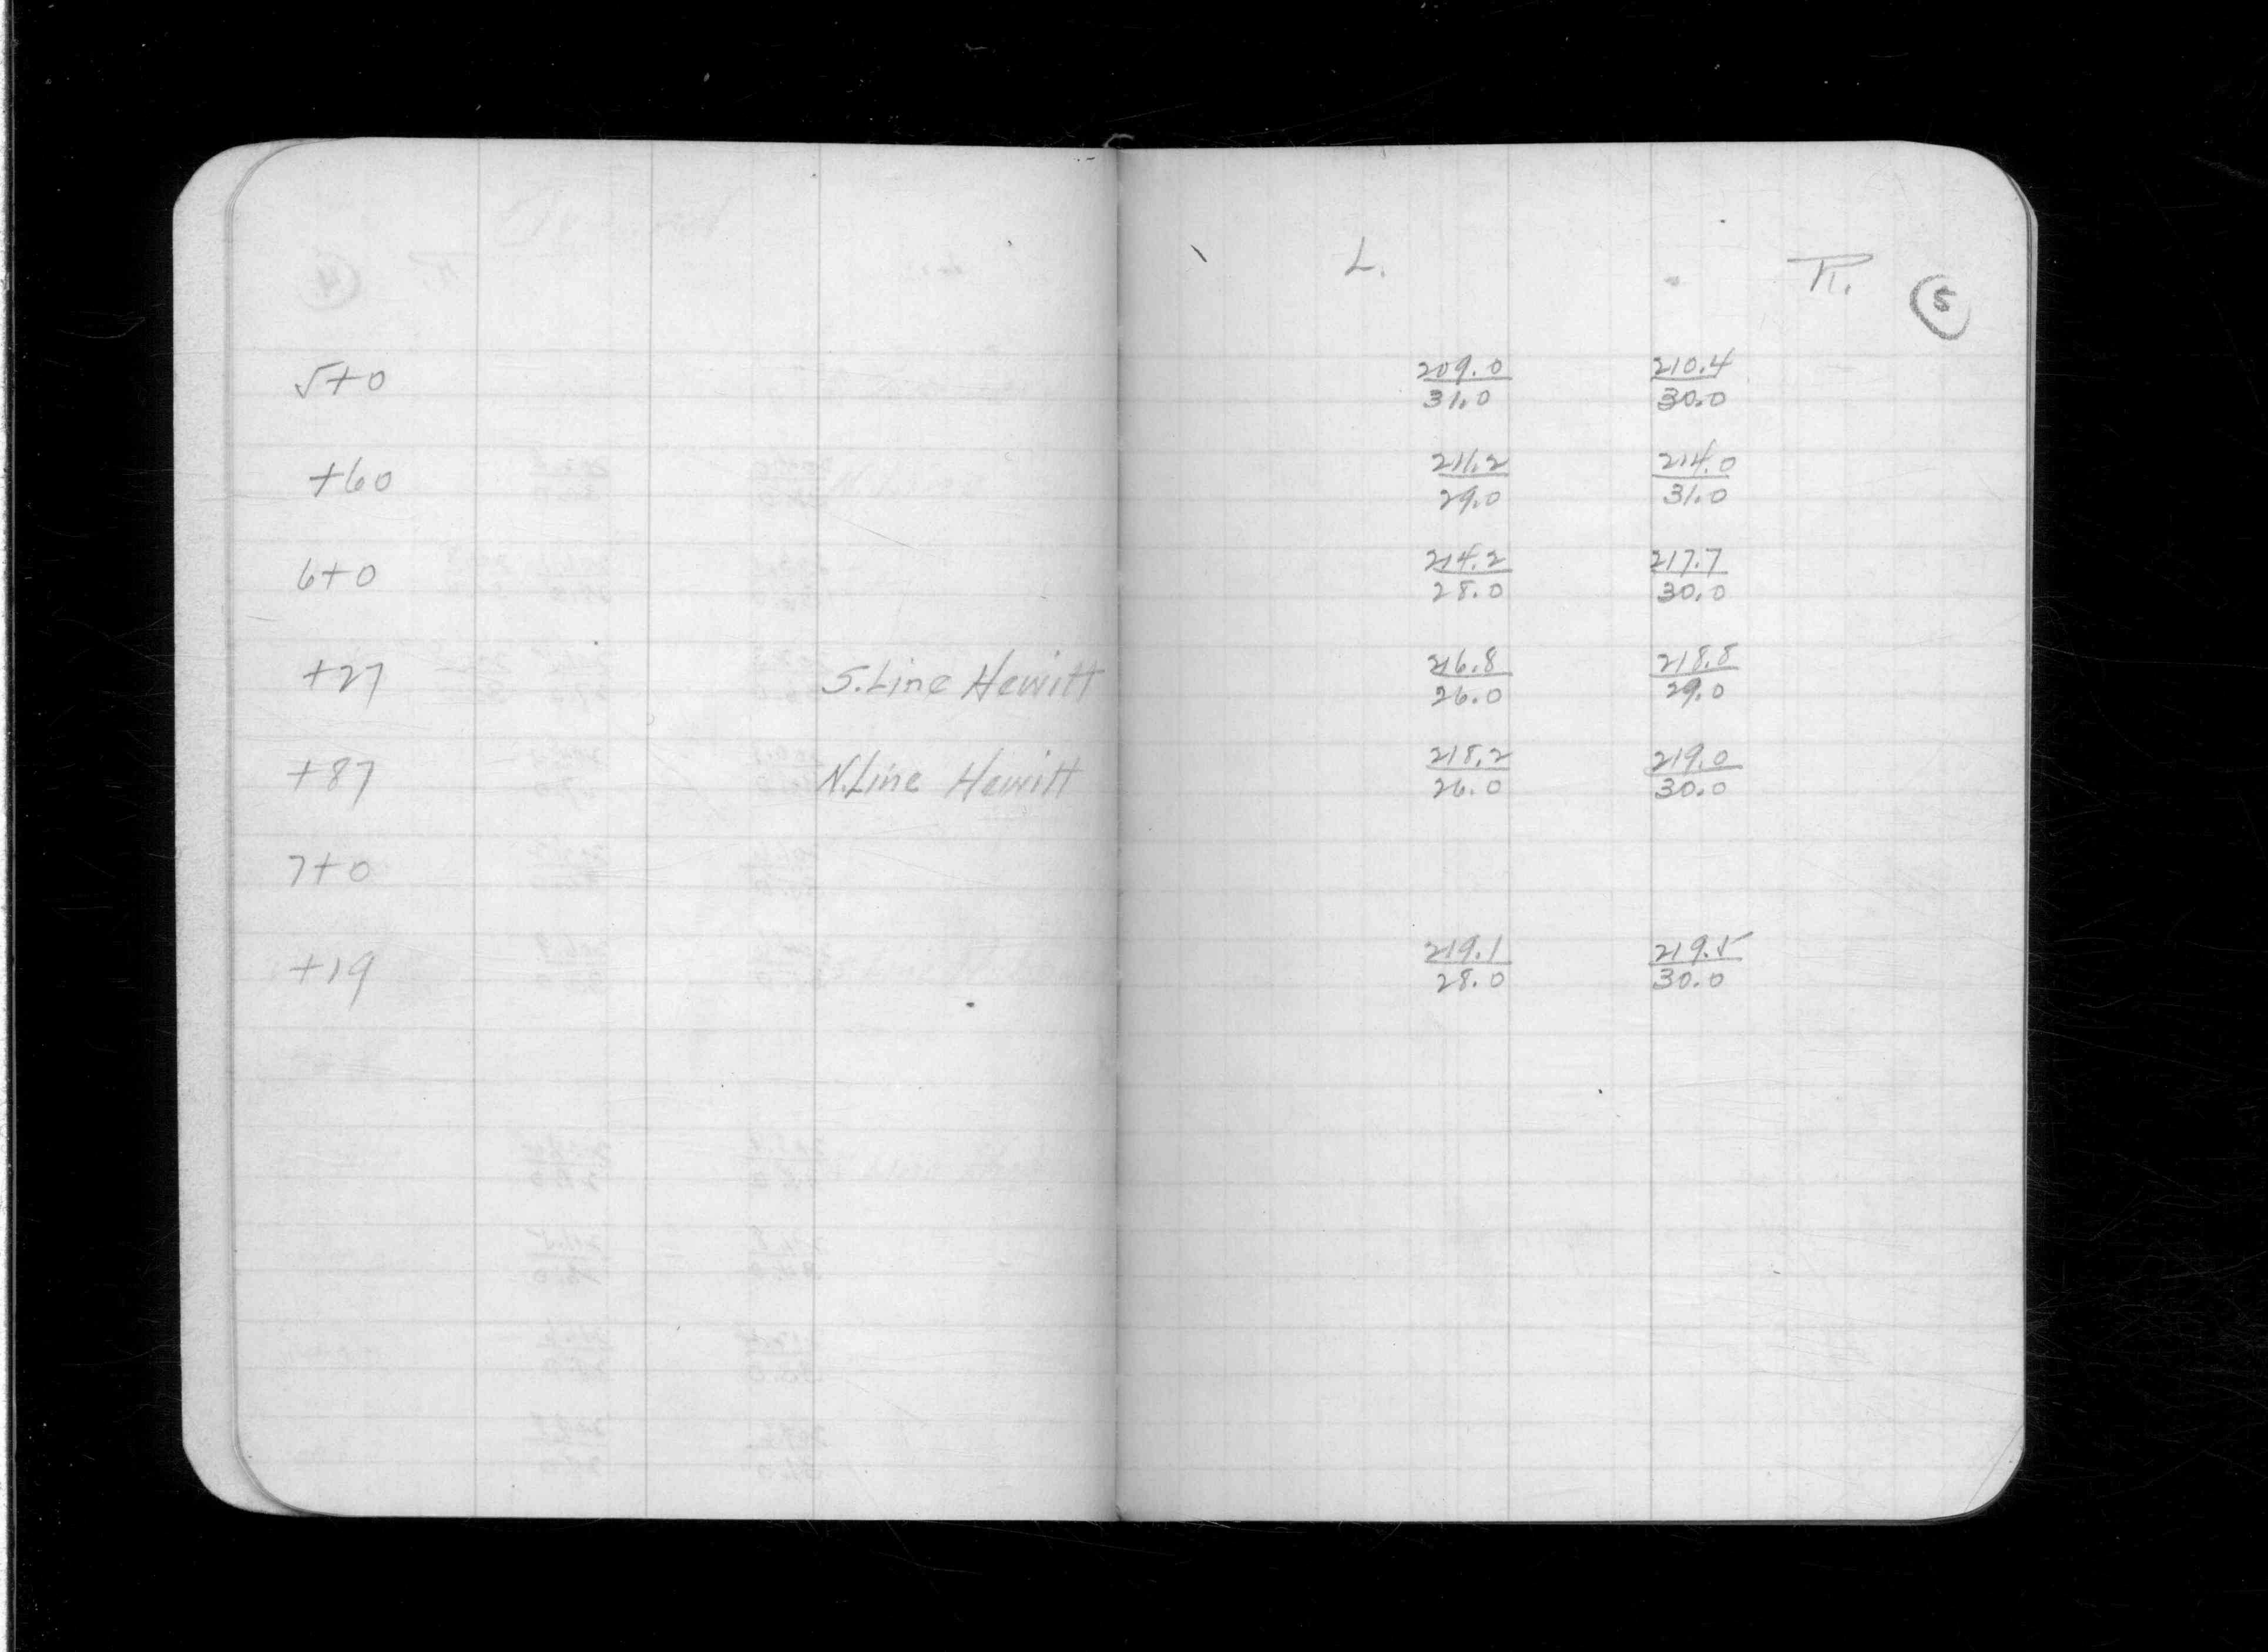 L. R. 5
5+0 209.0 210.4
31.0 30.0
+60 211.2 214.0
29.0 31.0
6+0 214.2 217.7
28.0 30.0
+27 S.Line Hewitt 216.8 218.8
26.0 29.0
+87 N.Line Hewitt 218.2 219.0
26.0 30.0
7+0
+19 219.1 219.5
28.0 30.0